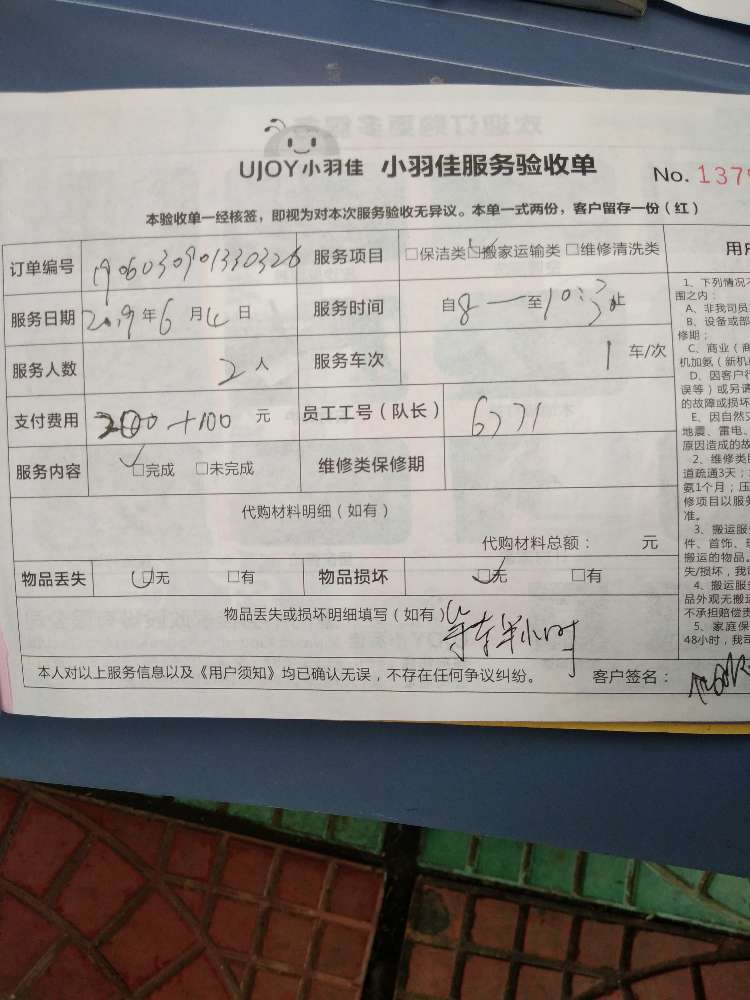 UJOY小羽佳 小羽佳服务验收单 No. 137
本验收单一经核签，即视为对本次服务验收无异议。本单一式两份，客户留存一份（红）
订单编号 1906030901330326 服务项目 □保洁类 ☑搬家运输类 □维修清洗类
服务日期 2019年6月4日 服务时间 自8一至10:3止
服务人数 2人 服务车次 1车/次
支付费用 200+100元 员工工号（队长） 6771
服务内容 ☑完成 □未完成 维修类保修期
代购材料明细（如有）
代购材料总额： 元
物品丢失 ☑无 □有 物品损坏 ☑无 □有
物品丢失或损坏明细填写（如有） 等车半小时
本人对以上服务信息以及《用户须知》均已确认无误，不存在任何争议纠纷。 客户签名：
用
1、下列情况
围之内：
A、非我司员
B、设备或部
修期；
C、商业（商
机加氨（新机
D、因客户行
误等）或另请
的故障或损坏
E、因自然灾
地震、雷电、
原因造成的故
2、维修类
道疏通3天；
氨1个月；压
修项目以服务
准。
3、搬运服
件、首饰、
搬运的物品。
失/损坏，我
4、搬运服
品外观无搬
不承担赔偿责
5、家庭保
48小时，我司